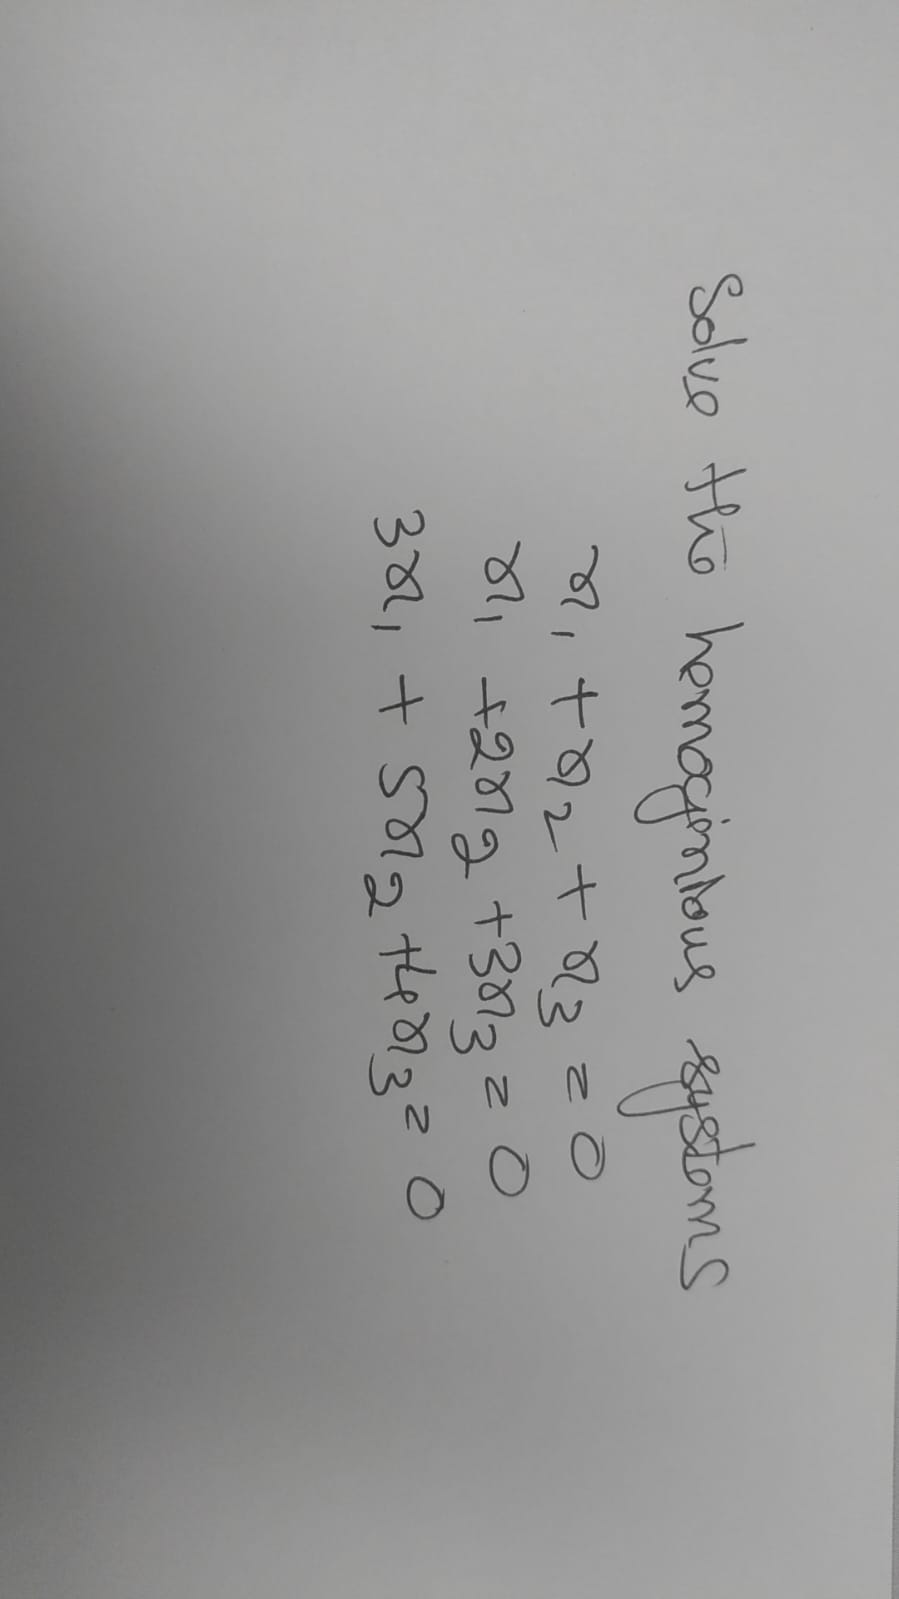 Solve the homogeneous systems
x₁ + x₂ + x₃ = 0
x₁ + 2x₂ + 3x₃ = 0
3x₁ + 5x₂ + 4x₃ = 0